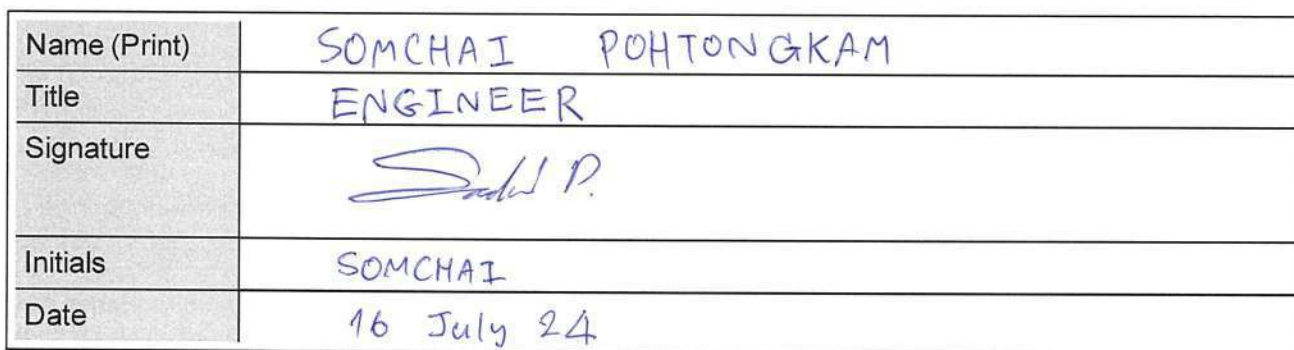 Name (Print) SOMCHAI POHTONGKAM
Title ENGINEER
Signature P.
Initials SOMCHAI
Date 16 July 24